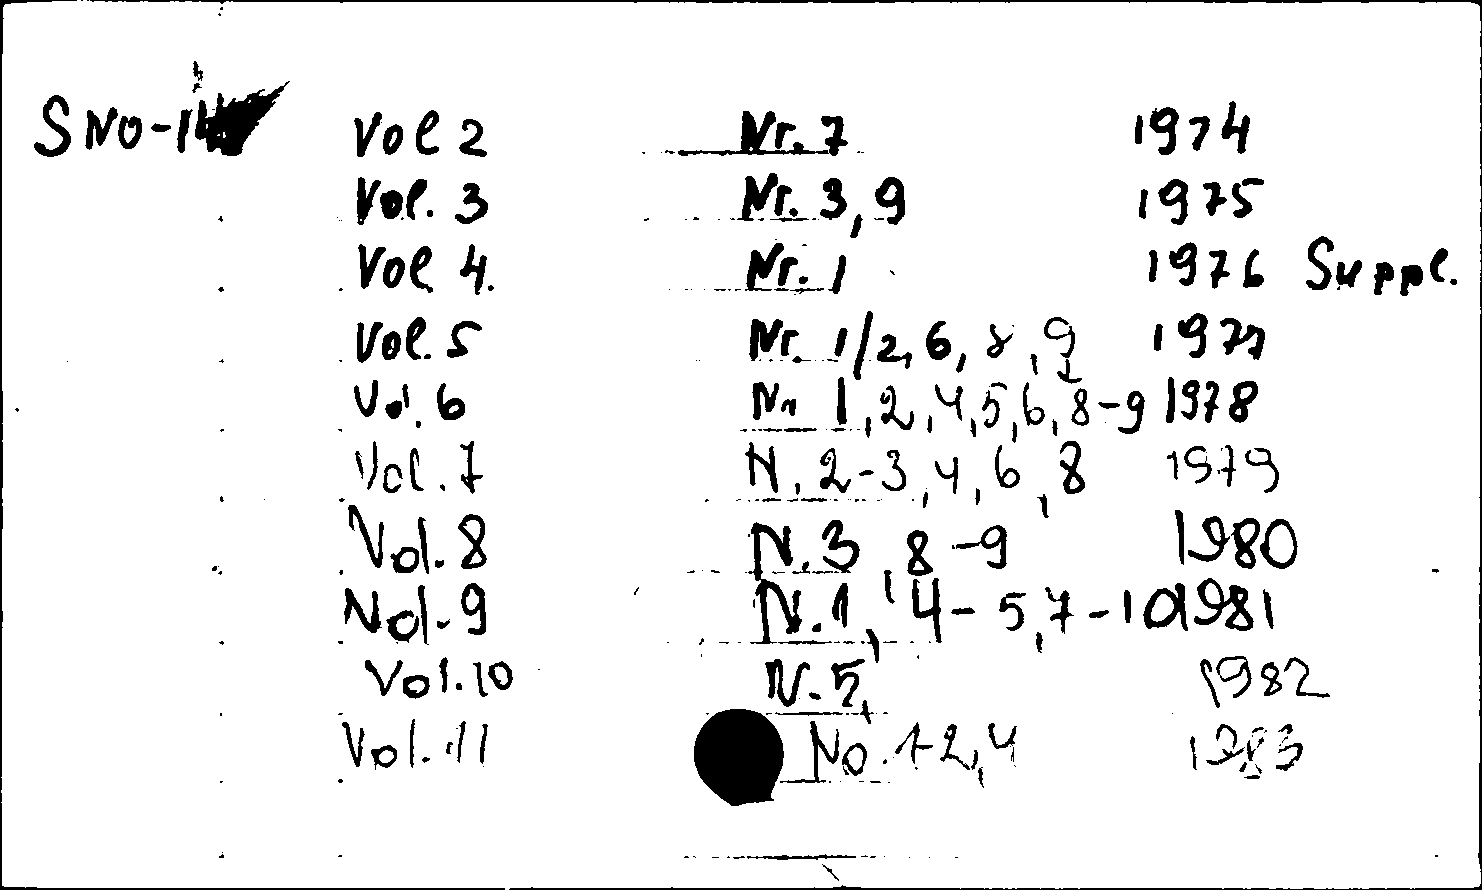 SNO-14 Vol 2 Nr. 7 1974
Vol. 3 Nr. 3, 9 1975
Vol 4. Nr. 1 1976 Suppl.
Vol. 5 Nr. 1/2, 6, 8, 9 1977
Vol. 6 Nr 1, 2, 4, 5, 6, 8-9 1978
Vol. 7 N. 2-3, 4, 6, 8 1979
Vol. 8 N. 3, 8-9 1980
Vol. 9 N. 1, 4-5, 7-10 1981
Vol. 10 N. 5, 1982
Vol. 11 No. 1-2, 4 1983